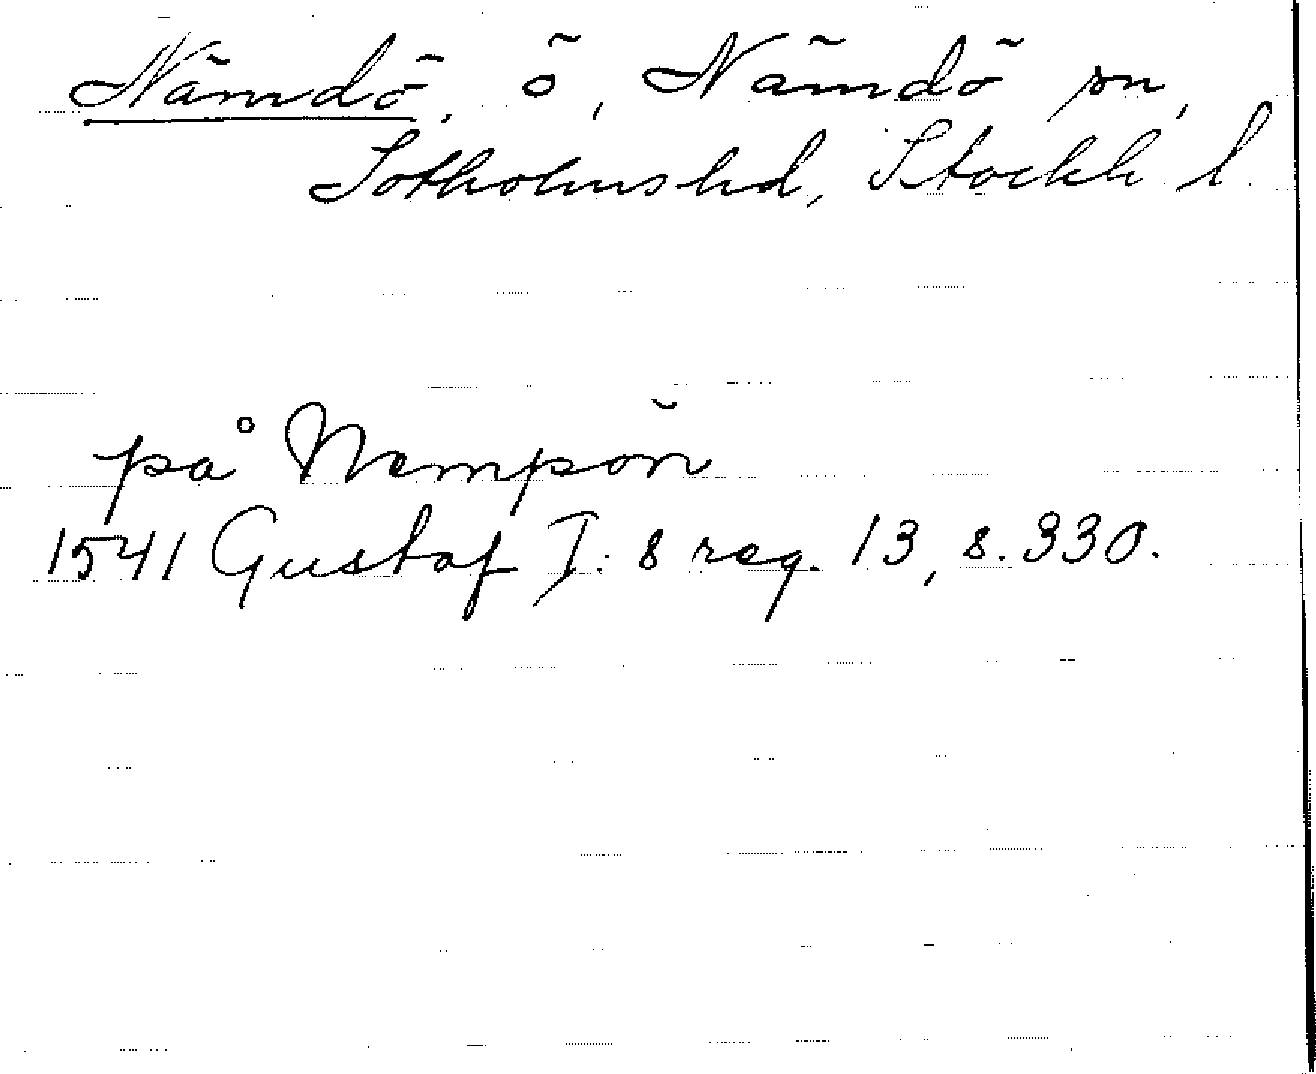 Nämdö, ö, Nämdö sn,
Sotholms hd, Stockh l.
på Nempön
1541 Gustaf I:s reg. 13, s. 330.